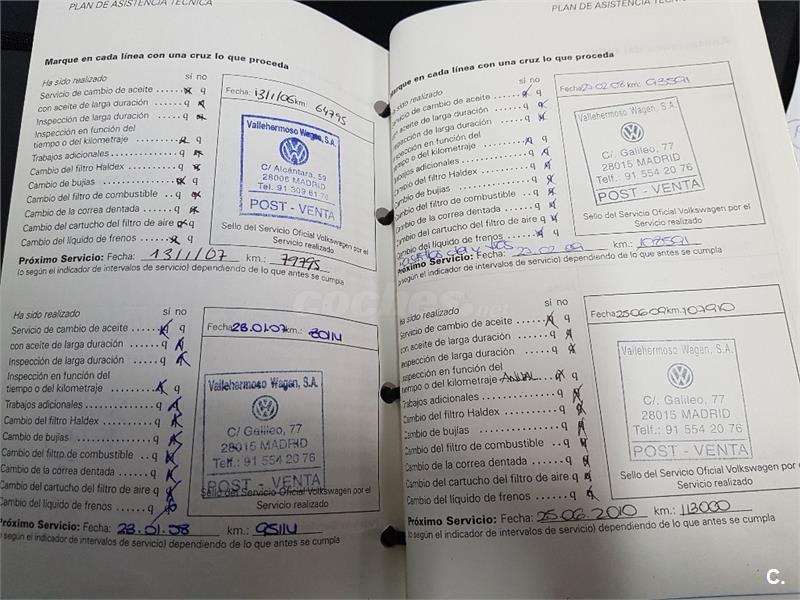 PLAN DE ASISTENCIA TÉCNICA
Marque en cada línea con una cruz lo que proceda
Ha sido realizado sí no
Servicio de cambio de aceite
con aceite de larga duración
Inspección de larga duración
Inspección en función del
tiempo o del kilometraje
Trabajos adicionales
Cambio del filtro Haldex
Cambio de bujías
Cambio del filtro de combustible
Cambio de la correa dentada
Cambio del cartucho del filtro de aire
Cambio del líquido de frenos
Fecha: 13/1/06 km: 64795
Vallehermoso Wagen, S.A.
C/ Alcántara, 59
28006 MADRID
Tel. 91 309 61 76
POST - VENTA
Sello del Servicio Oficial Volkswagen por el
Servicio realizado
Próximo Servicio: Fecha: 13/1/07 km.: 79795
(o según el indicador de intervalos de servicio) dependiendo de lo que antes se cumpla
Ha sido realizado sí no
Servicio de cambio de aceite
con aceite de larga duración
Inspección de larga duración
Inspección en función del
tiempo o del kilometraje
Trabajos adicionales
Cambio del filtro Haldex
Cambio de bujías
Cambio del filtro de combustible
Cambio de la correa dentada
Cambio del cartucho del filtro de aire
Cambio del líquido de frenos
Fecha: 23.01.07 km.: 80114
Vallehermoso Wagen, S.A.
C/ Galileo, 77
28015 MADRID
Telf.: 91 554 20 76
POST - VENTA
Sello del Servicio Oficial Volkswagen por el
Servicio realizado
Próximo Servicio: Fecha: 23.01.08 km.: 95114
(o según el indicador de intervalos de servicio) dependiendo de lo que antes se cumpla
PLAN DE ASISTENCIA TÉCNICA
Marque en cada línea con una cruz lo que proceda
Ha sido realizado sí no
Servicio de cambio de aceite
con aceite de larga duración
Inspección de larga duración
Inspección en función del
tiempo o del kilometraje
Trabajos adicionales
Cambio del filtro Haldex
Cambio de bujías
Cambio del filtro de combustible
Cambio de la correa dentada
Cambio del cartucho del filtro de aire
Cambio del líquido de frenos
Fecha: 22.02.08 km.: 93591
Vallehermoso Wagen, S.A.
C/ Galileo, 77
28015 MADRID
Telf.: 91 554 20 76
POST - VENTA
Sello del Servicio Oficial Volkswagen por el
Servicio realizado
Próximo Servicio: Fecha: 22.02.09 km.: 108591
(o según el indicador de intervalos de servicio) dependiendo de lo que antes se cumpla
Ha sido realizado sí no
Servicio de cambio de aceite
con aceite de larga duración
Inspección de larga duración
Inspección en función del
tiempo o del kilometraje ANUAL
Trabajos adicionales
Cambio del filtro Haldex
Cambio de bujías
Cambio del filtro de combustible
Cambio de la correa dentada
Cambio del cartucho del filtro de aire
Cambio del líquido de frenos
Fecha: 25.06.09 km.: 107910
Vallehermoso Wagen, S.A.
C/ Galileo, 77
28015 MADRID
Telf.: 91 554 20 76
POST - VENTA
Sello del Servicio Oficial Volkswagen por el
Servicio realizado
Próximo Servicio: Fecha: 25.06.2010 km.: 113000
(o según el indicador de intervalos de servicio) dependiendo de lo que antes se cumpla
coches.net
C.